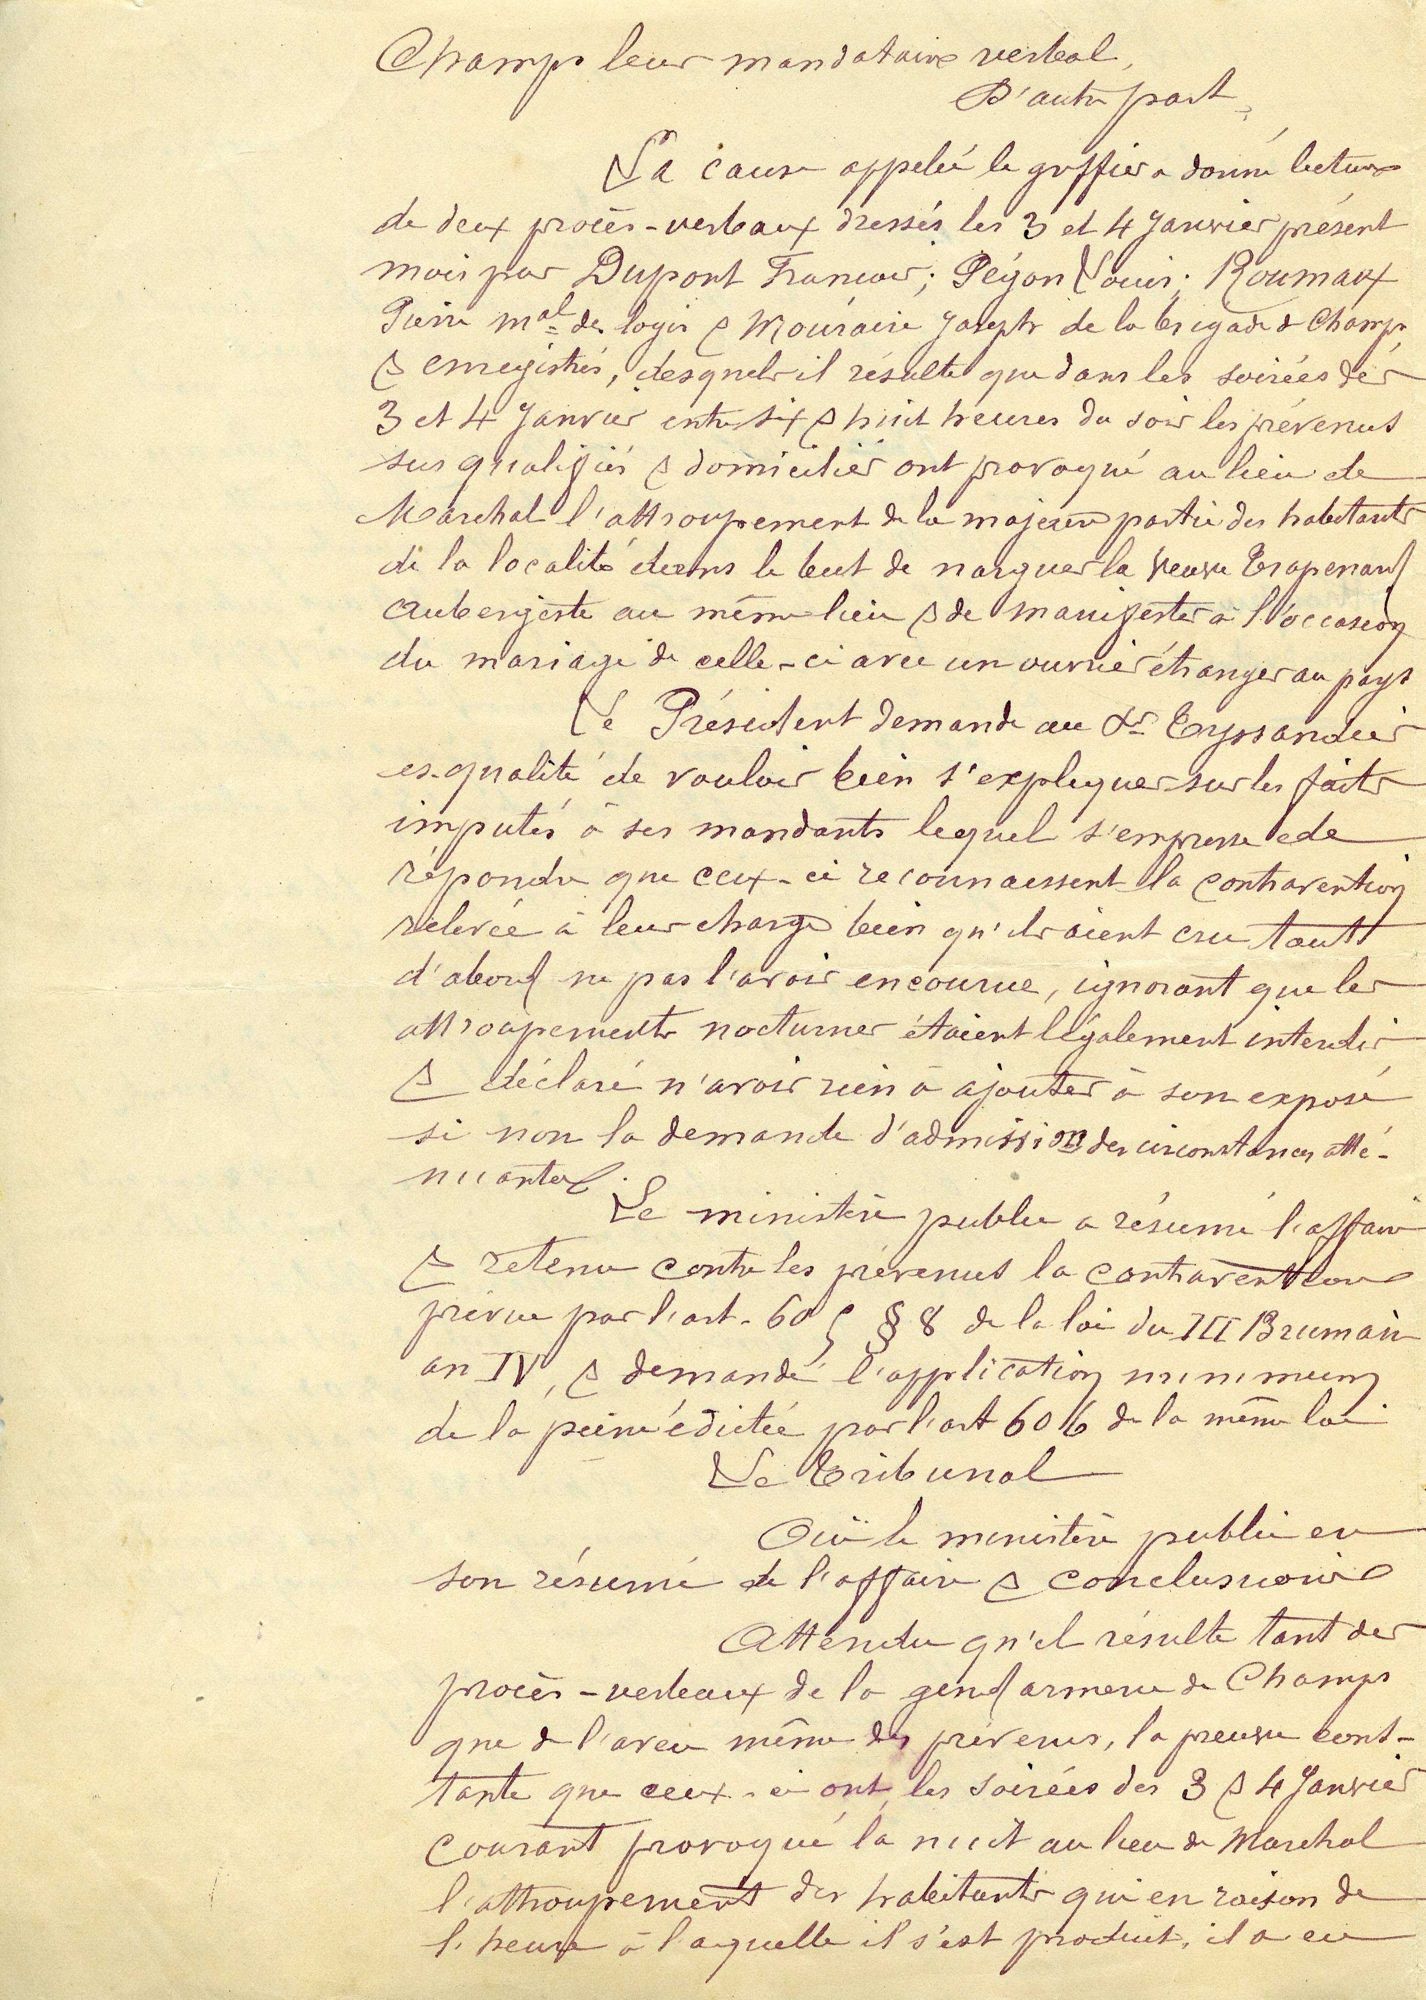 Champs leur mandataire verbal,
D'autre part,
La cause appelée le greffier a donné lecture
de deux procès-verbaux dressés les 3 et 4 Janvier présent
mois par Dupont Francois; Péyon Louis; Roumaux
Pierre mal des logis & Mouraire Joseph de la brigade de Champs,
& enregistrés, desquels il résulte que dans les soirées des
3 et 4 Janvier entre six & huit heures du soir les prévenus
sus qualifiés & domiciliés ont provoqué au lieu de
Marchal l'attroupement de la majeure partie des habitants
de la localité dans le but de narguer la veuve Trapenard
aubergiste au même lieu & de manifester à l'occasion
du mariage de celle-ci avec un ouvrier étranger au pays
Le Président demande au Sr Eyssandier
es-qualité de vouloir bien s'expliquer sur les faits
imputés à ses mandants lequel s'empresse de
répondre que ceux-ci reconnaissent la contravention
relevée à leur charge bien qu'ils aient cru tout
d'abord ne pas l'avoir encourue, ignorant que les
attroupements nocturnes étaient légalement interdis
& déclaré n'avoir rien à ajouter à son exposé
si non la demande d'admission des circonstances atté-
nuantes.
Le ministère public a résumé l'affaire
& retenu contre les prévenus la contravention
prévue par l'art. 605 § 8 de la loi du III Brumaire
an IV, & demandé l'application minimum
de la peine édictée par l'art 606 de la même loi
Le Tribunal
Ouï le ministère public en
son résumé de l'affaire & conclusions
Attendu qu'il résulte tant des
procès-verbaux de la gendarmerie de Champs
que de l'aveu même des prévenus, la preuve cons-
tante que ceux-ci ont les soirées des 3 & 4 Janvier
courant provoqué la nuit au lieu de Marchal
l'attroupement des habitants qui en raison de
l'heure à laquelle il s'est produit, il a eu